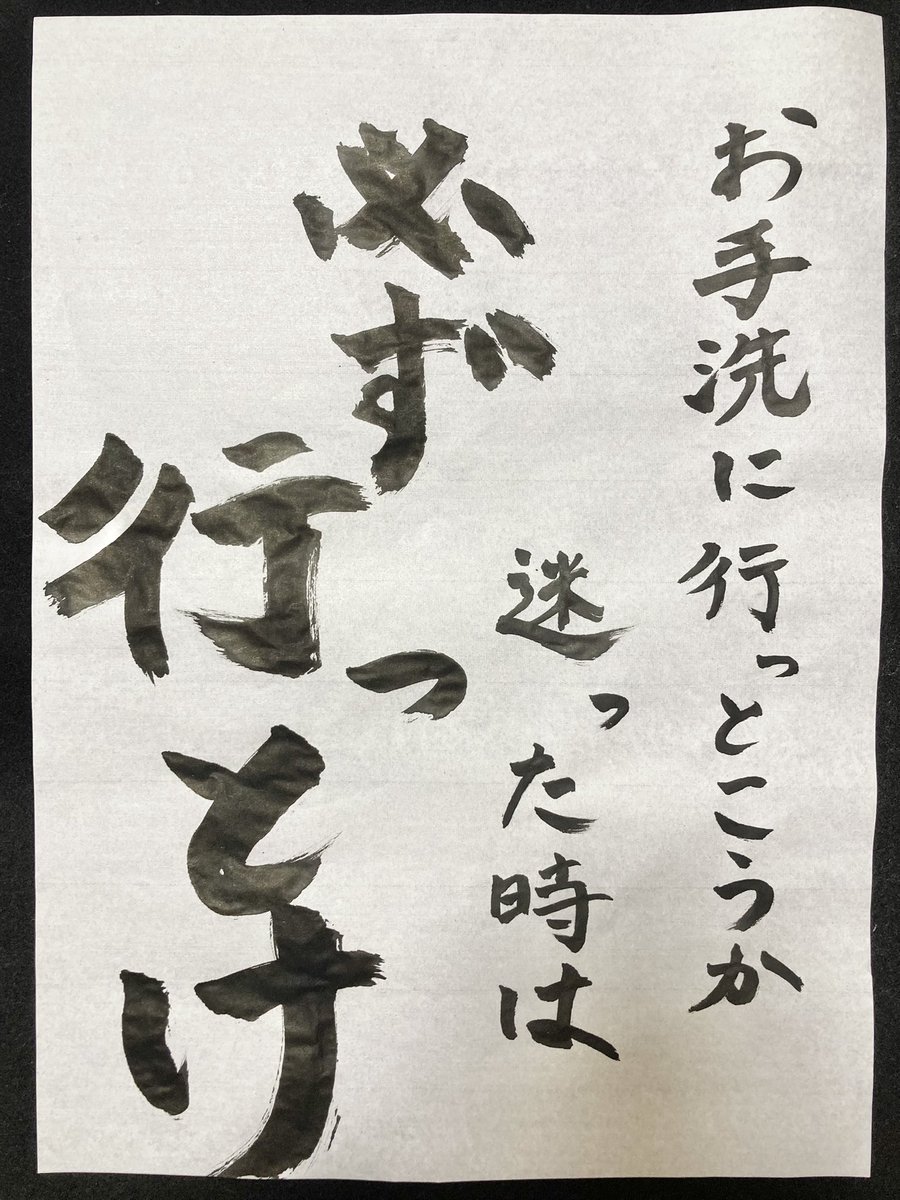 お手洗に行っとこうか
迷った時は
必ず
行っとけ